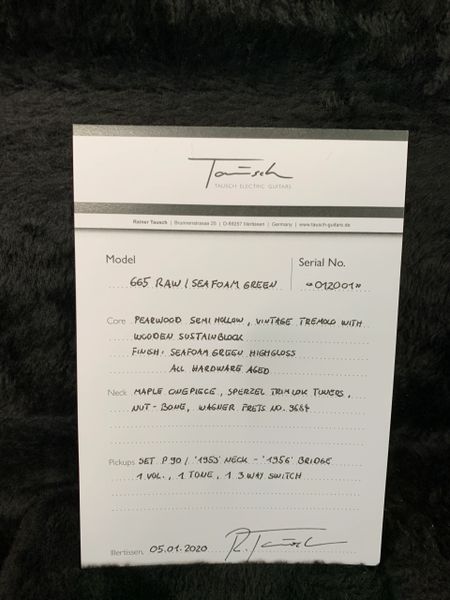 Tausch
TAUSCH ELECTRIC GUITARS
Rainer Tausch | Brunnenstrasse 20 | D-89257 Illertissen | Germany | www.tausch-guitars.de
Model
Serial No.
665 RAW / SEAFOAM GREEN
"012001"
Core PEARWOOD SEMI HOLLOW, VINTAGE TREMOLO WITH
WOODEN SUSTAINBLOCK
FINISH: SEAFOAM GREEN HIGHGLOSS
ALL HARDWARE AGED
Neck MAPLE ONEPIECE, SPERZEL TRIMLOK TUNERS,
NUT-BONE, WAGNER FRETS NO. 9684
Pickups SET P90 / '1953' NECK - '1956' BRIDGE
1 VOL., 1 TONE, 1 3 WAY SWITCH
Illertissen, 05.01.2020 R. Tausch